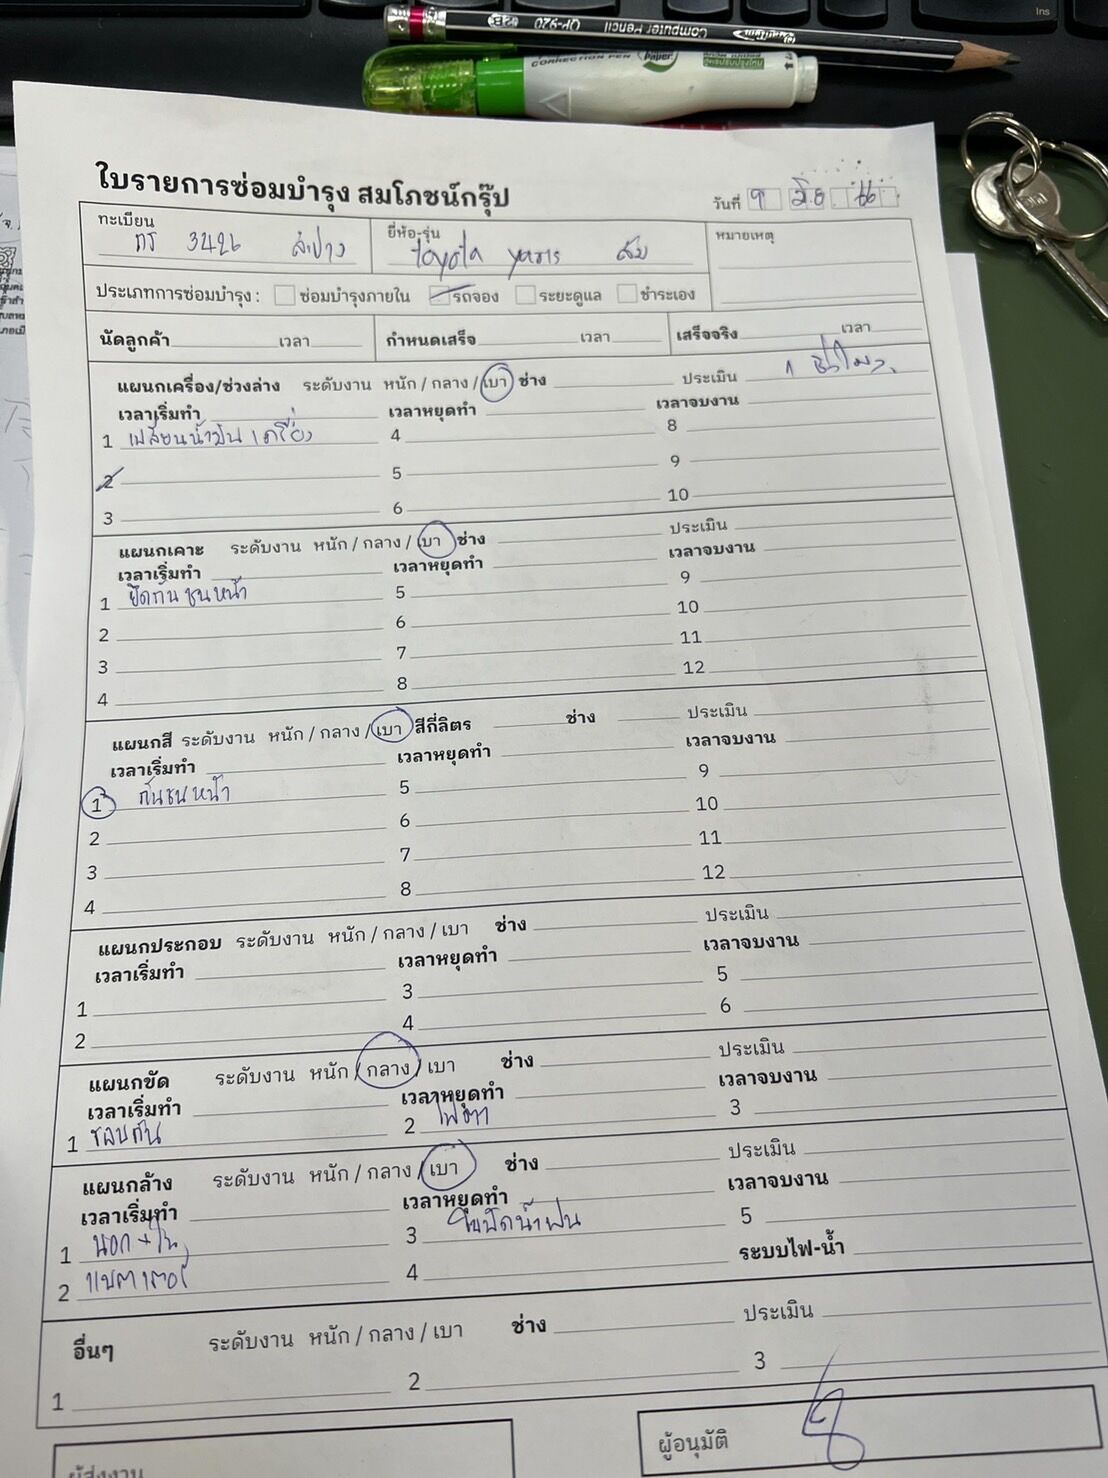 Ins
Computer Pencil OP-920 2B
CORRECTION PEN
Paper
ใบรายการซ่อมบำรุง สมโภชน์กรุ๊ป
วันที่ 9 มิย 66
ทะเบียน ยี่ห้อ-รุ่น หมายเหตุ
กร 3426 ลำปาง toyota yaris ส้ม
ประเภทการซ่อมบำรุง : ซ่อมบำรุงภายใน รถจอง ระยะดูแล ชำระเอง
นัดลูกค้า เวลา กำหนดเสร็จ เวลา เสร็จจริง เวลา
แผนกเครื่อง/ช่วงล่าง ระดับงาน หนัก / กลาง / เบา ช่าง ประเมิน 1 ชั่วโมง
เวลาเริ่มทำ เวลาหยุดทำ เวลาจบงาน
1 เปลี่ยนน้ำมันเครื่อง 4 8
2 5 9
3 6 10
แผนกเคาะ ระดับงาน หนัก / กลาง / เบา ช่าง ประเมิน
เวลาเริ่มทำ เวลาหยุดทำ เวลาจบงาน
1 ยึดกันชนหน้า 5 9
2 6 10
3 7 11
4 8 12
แผนกสี ระดับงาน หนัก / กลาง / เบา สีกี่ลิตร ช่าง ประเมิน
เวลาเริ่มทำ เวลาหยุดทำ เวลาจบงาน
1 กันชนหน้า 5 9
2 6 10
3 7 11
4 8 12
แผนกประกอบ ระดับงาน หนัก / กลาง / เบา ช่าง ประเมิน
เวลาเริ่มทำ เวลาหยุดทำ เวลาจบงาน
1 3 5
2 4 6
แผนกขัด ระดับงาน หนัก / กลาง / เบา ช่าง ประเมิน
เวลาเริ่มทำ เวลาหยุดทำ เวลาจบงาน
1 รอบคัน 2 ไฟตา 3
แผนกล้าง ระดับงาน หนัก / กลาง / เบา ช่าง ประเมิน
เวลาเริ่มทำ เวลาหยุดทำ เวลาจบงาน
1 นอก+ใน 3 ใบปัดน้ำฝน 5
2 แบตเตอรี่ 4 ระบบไฟ-น้ำ
อื่นๆ ระดับงาน หนัก / กลาง / เบา ช่าง ประเมิน
1 2 3
ผู้ส่งงาน ผู้อนุมัติ